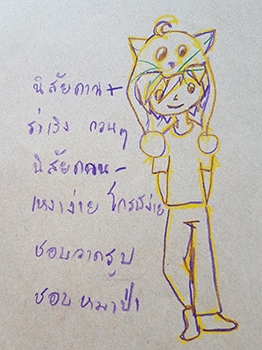 นิสัยด้าน +
ร่าเริง กวนๆ
นิสัยด้าน -
เหงาง่าย โกรธง่าย
ชอบวาดรูป
ชอบหมาป่า